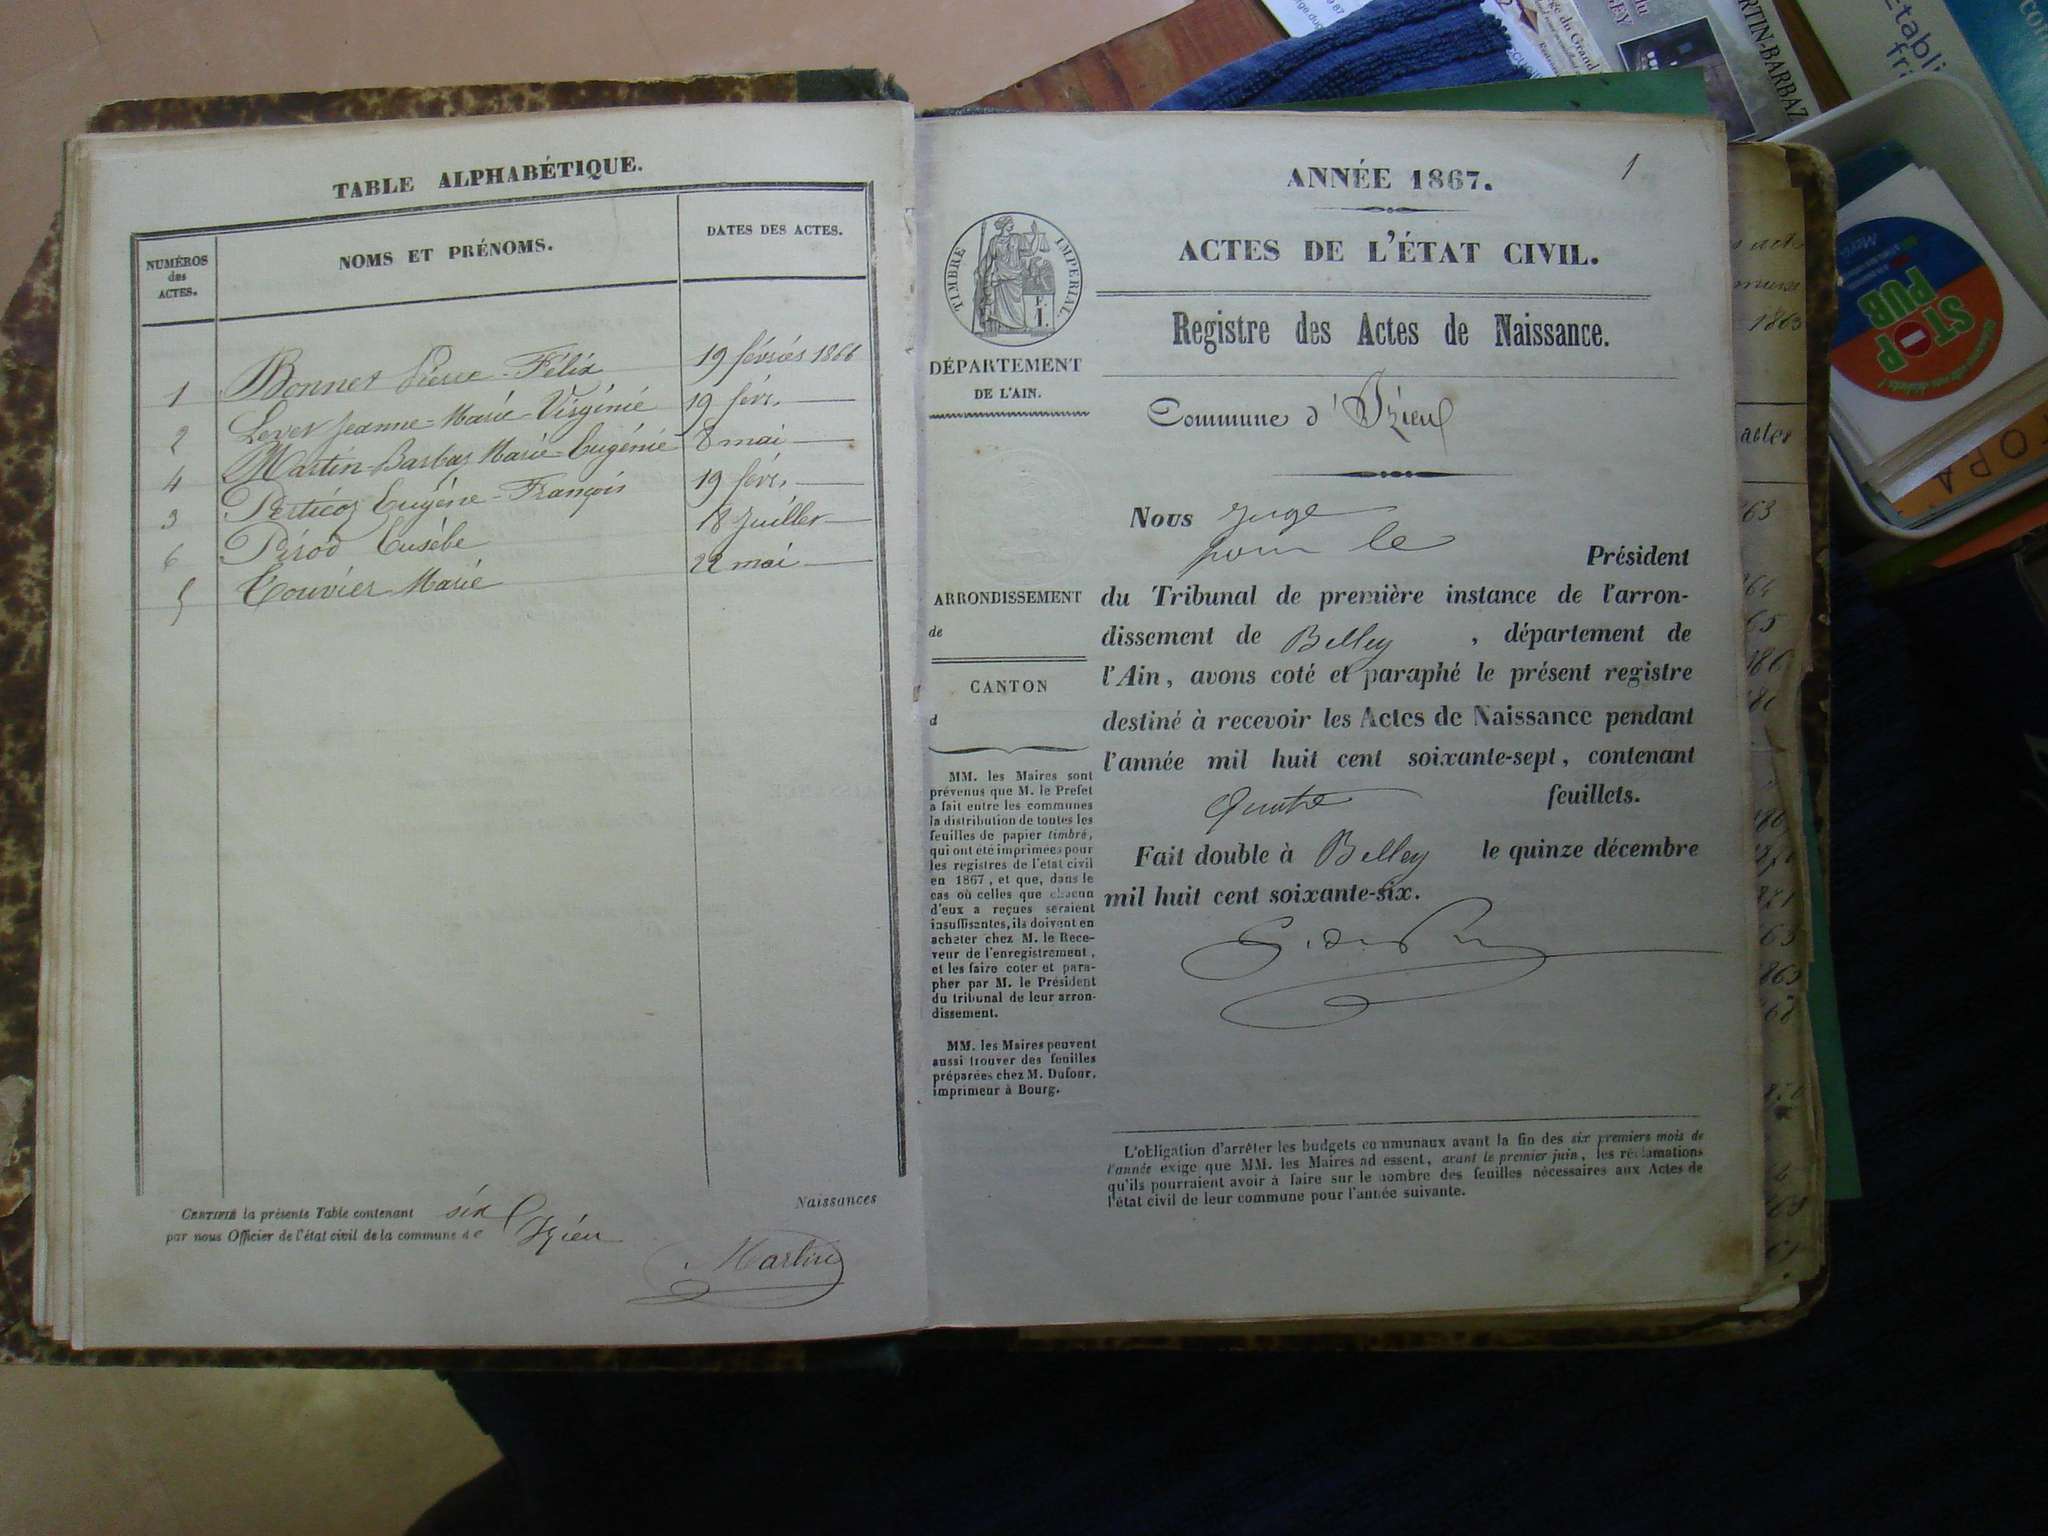 TABLE ALPHABÉTIQUE.
NUMÉROS des ACTES.
NOMS ET PRÉNOMS.
DATES DES ACTES.
1 Bonnet Pierre-Félix 19 février 1866
2 Levet Jeanne-Marie-Virginie 19 févr.
4 Martin-Barbaz Marie-Eugénie 8 mai
3 Perticoz Eugène-François 19 févr.
6 Pirod Eusèbe 18 juillet
5 Touvier Marie 22 mai
CERTIFIÉ la présente Table contenant six Naissances
par nous Officier de l'état civil de la commune de Izieu
Martin
1
ANNÉE 1867.
ACTES DE L'ÉTAT CIVIL.
TIMBRE IMPERIAL.
Registre des Actes de Naissance.
DÉPARTEMENT
DE L'AIN.
Commune d'Izieu
Nous juge
pour le Président
ARRONDISSEMENT
de
CANTON
d
du Tribunal de première instance de l'arron-
dissement de Belley, département de
l'Ain, avons coté et paraphé le présent registre
destiné à recevoir les Actes de Naissance pendant
l'année mil huit cent soixante-sept, contenant
Quatre feuillets.
Fait double à Belley le quinze décembre
mil huit cent soixante-six.
MM. les Maires sont
prévenus que M. le Prefet
a fait entre les communes
la distribution de toutes les
feuilles de papier timbré,
qui ont été imprimées pour
les registres de l'état civil
en 1867, et que, dans le
cas où celles que chacun
d'eux a reçues seraient
insuffisantes, ils doivent en
acheter chez M. le Rece-
veur de l'enregistrement,
et les faire coter et para-
pher par M. le Président
du tribunal de leur arron-
dissement.
MM. les Maires peuvent
aussi trouver des feuilles
préparées chez M. Dufour,
imprimeur à Bourg.
L'obligation d'arrêter les budgets communaux avant la fin des six premiers mois de
l'année exige que MM. les Maires adressent, avant le premier juin, les réclamations
qu'ils pourraient avoir à faire sur le nombre des feuilles nécessaires aux Actes de
l'état civil de leur commune pour l'année suivante.
1863
actes
STOP
PUB